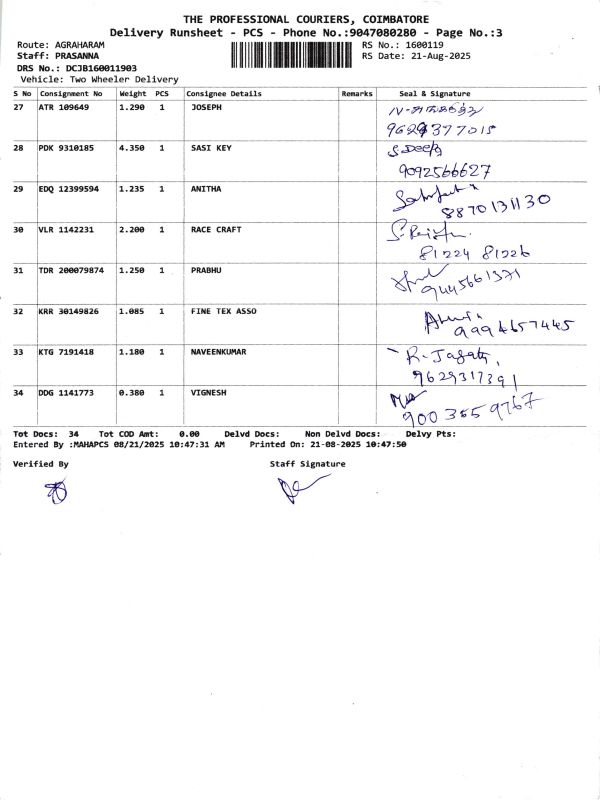 THE PROFESSIONAL COURIERS, COIMBATORE
Delivery Runsheet - PCS - Phone No.:9047080280 - Page No.:3
Route: AGRAHARAM RS No.: 1600119
Staff: PRASANNA RS Date: 21-Aug-2025
DRS No.: DCJB160011903
Vehicle: Two Wheeler Delivery
S No Consignment No Weight PCS Consignee Details Remarks Seal & Signature
27 ATR 109649 1.290 1 JOSEPH
9629377015
28 PDK 9310185 4.350 1 SASI KEY S.Deepa
9092566627
29 EDQ 12399594 1.235 1 ANITHA
8870131130
30 VLR 1142231 2.200 1 RACE CRAFT
81224 81226
31 TDR 200079874 1.250 1 PRABHU
9445661371
32 KRR 30149826 1.085 1 FINE TEX ASSO
9994657445
33 KTG 7191418 1.180 1 NAVEENKUMAR
9629317391
34 DDG 1141773 0.380 1 VIGNESH
9003559767
Tot Docs: 34 Tot COD Amt: 0.00 Delvd Docs: Non Delvd Docs: Delvy Pts:
Entered By :MAHAPCS 08/21/2025 10:47:31 AM Printed On: 21-08-2025 10:47:50
Verified By Staff Signature